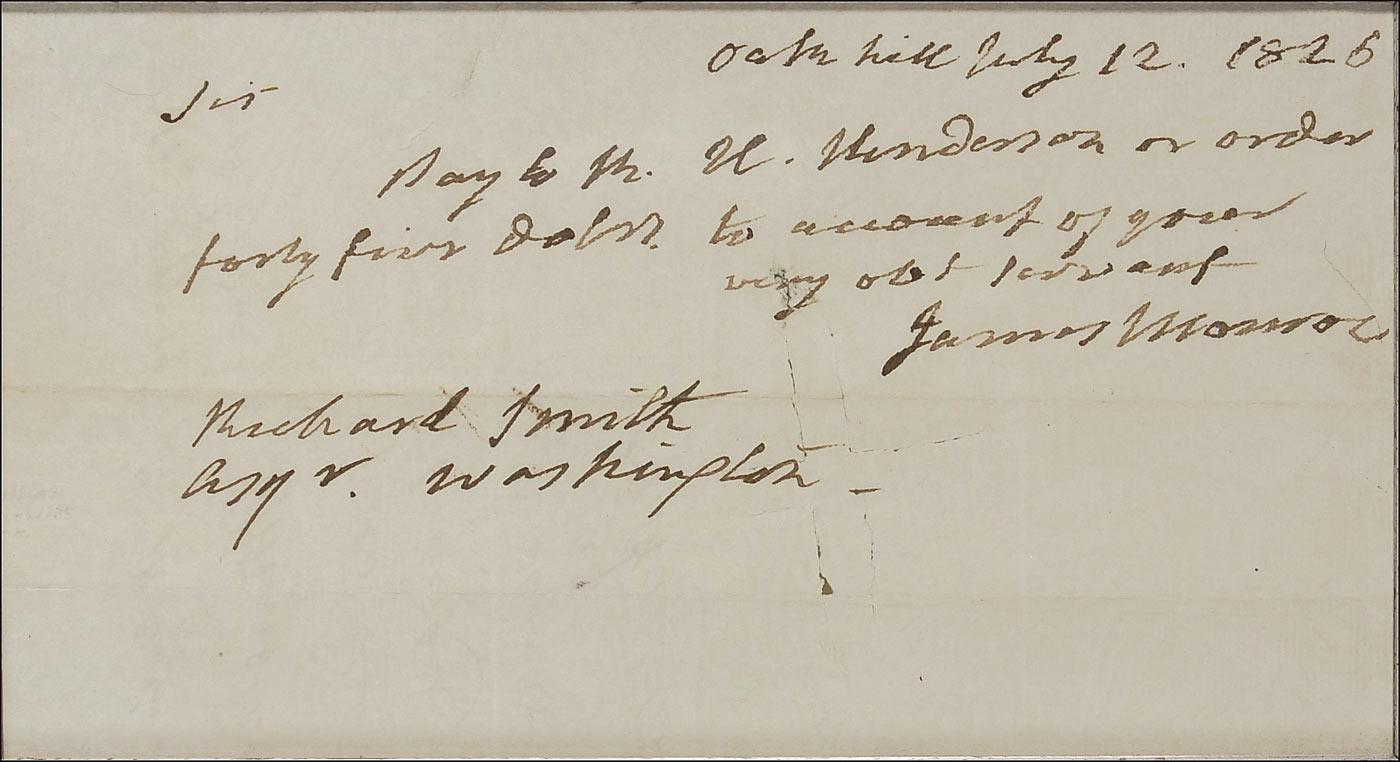 Oak hill July 12. 1826
Sir
Pay to R. H. Henderson or order
forty five dolrs. to account of your
very obt servant
James Monroe
Richard Smith
Esqr. Washington _